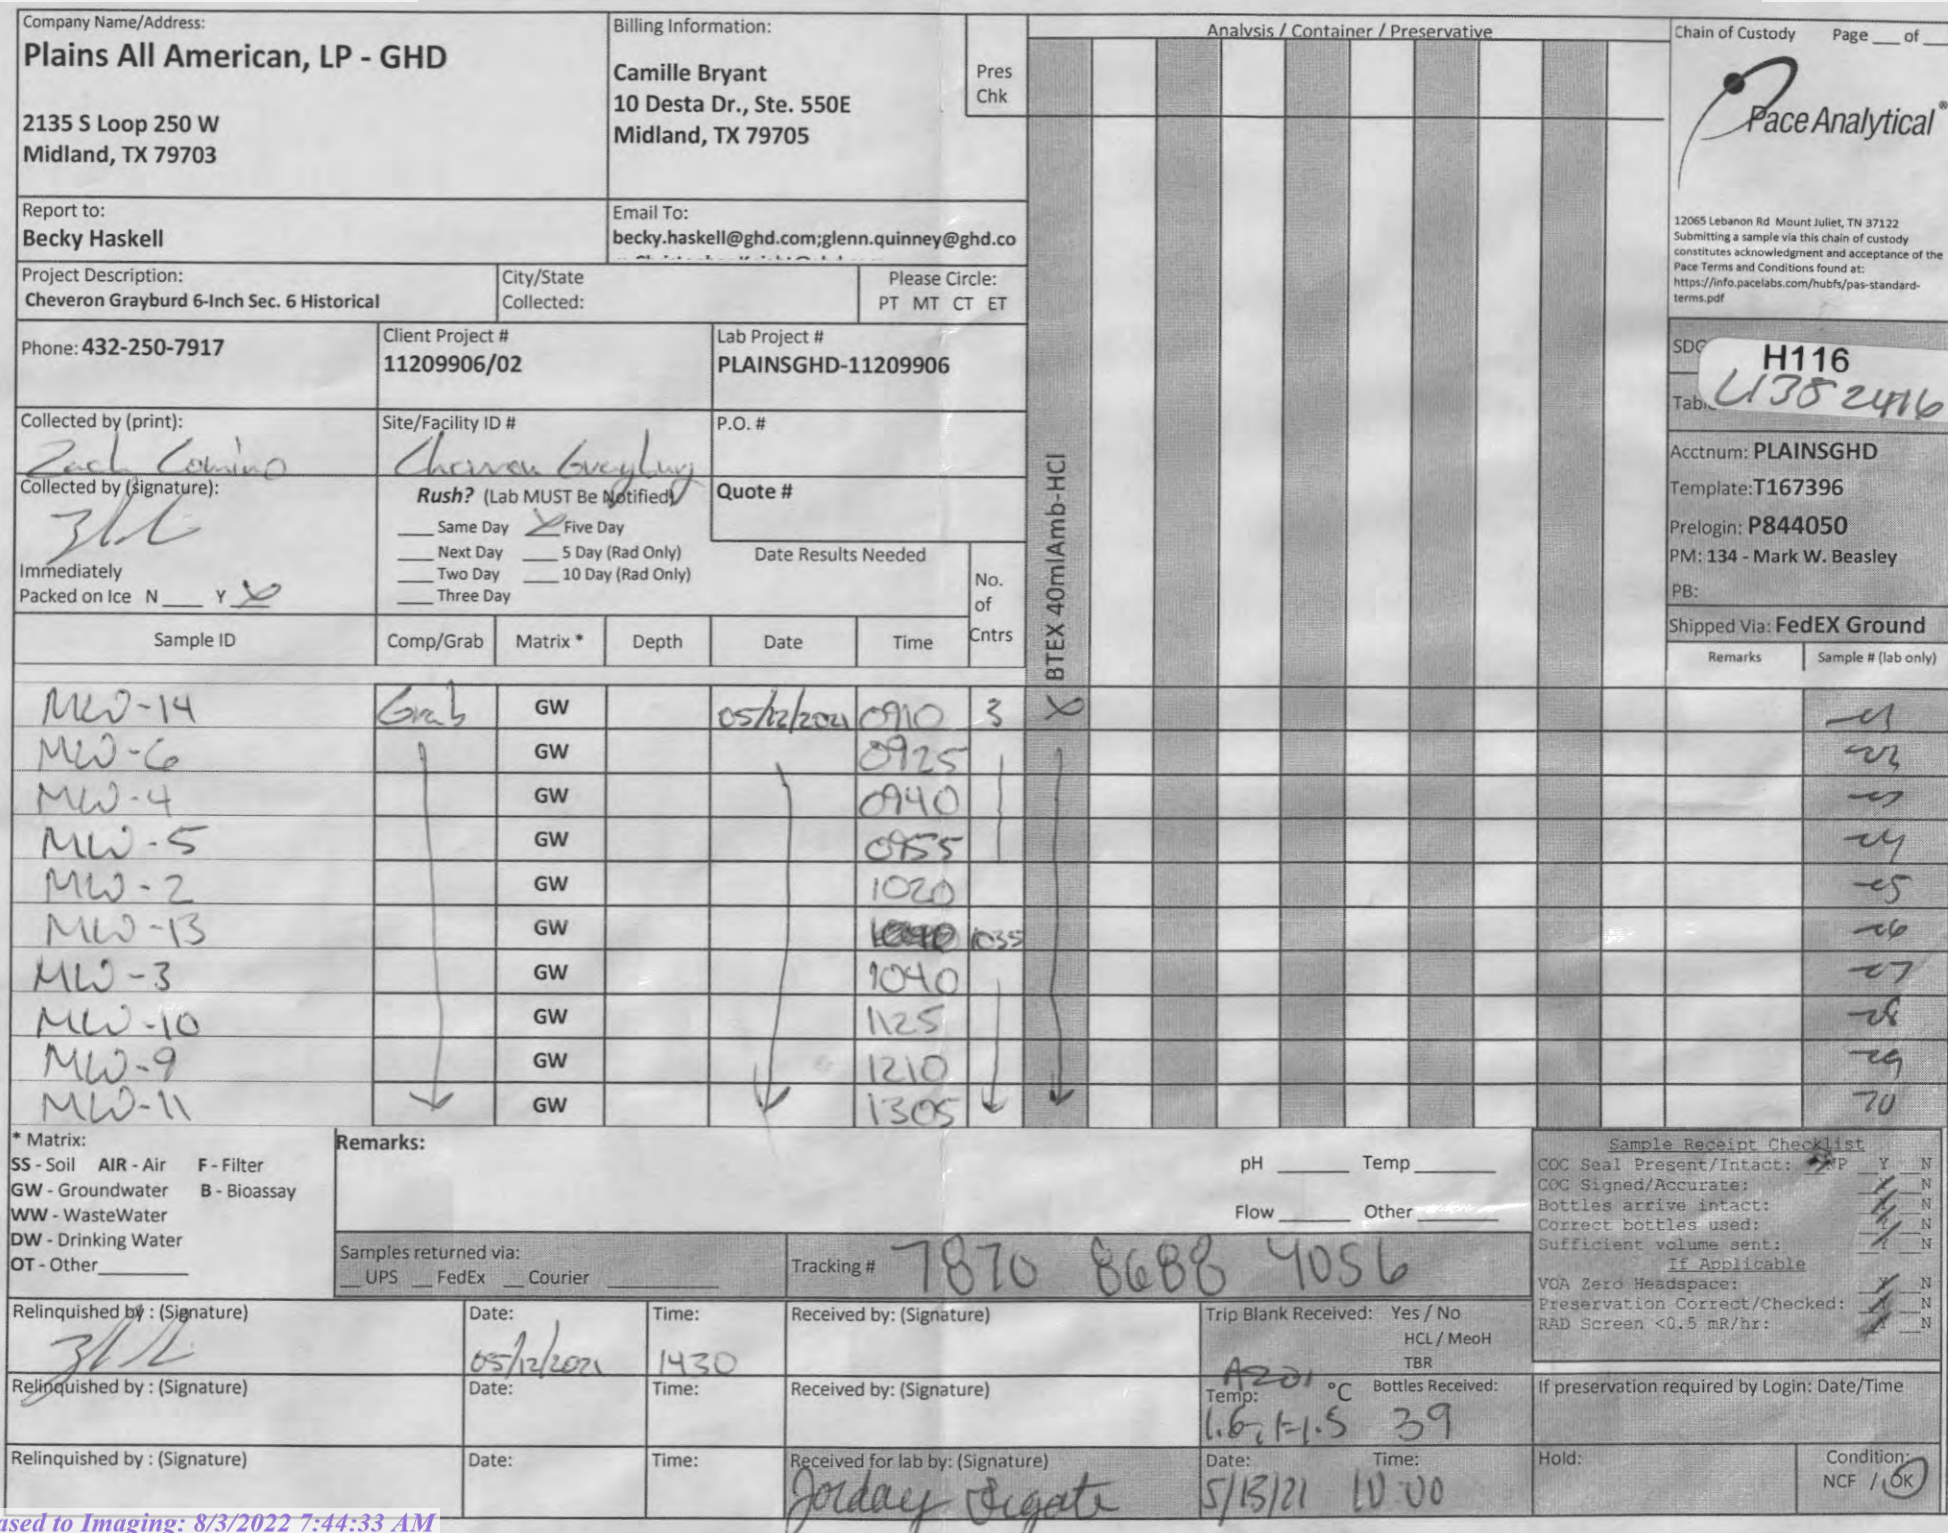 Company Name/Address:
Plains All American, LP - GHD
2135 S Loop 250 W
Midland, TX 79703
Billing Information:
Camille Bryant
10 Desta Dr., Ste. 550E
Midland, TX 79705
Pres
Chk
Analysis / Container / Preservative
Chain of Custody Page ___ of ___
Pace Analytical®
12065 Lebanon Rd Mount Juliet, TN 37122
Submitting a sample via this chain of custody
constitutes acknowledgment and acceptance of the
Pace Terms and Conditions found at:
https://info.pacelabs.com/hubfs/pas-standard-
terms.pdf
Report to:
Becky Haskell
Email To:
becky.haskell@ghd.com;glenn.quinney@ghd.co
Project Description:
Cheveron Grayburd 6-Inch Sec. 6 Historical
City/State
Collected:
Please Circle:
PT MT CT ET
Phone: 432-250-7917
Client Project #
11209906/02
Lab Project #
PLAINSGHD-11209906
SDG
H116
L1352416
Collected by (print):
Zach Comino
Site/Facility ID #
P.O. #
Acctnum: PLAINSGHD
Template:T167396
Prelogin: P844050
PM: 134 - Mark W. Beasley
PB:
Shipped Via: FedEX Ground
Collected by (signature):
Rush? (Lab MUST Be Notified)
___ Same Day X Five Day
___ Next Day ___ 5 Day (Rad Only)
___ Two Day ___ 10 Day (Rad Only)
___ Three Day
Quote #
Date Results Needed
Immediately
Packed on Ice N ___ Y X
No.
of
Cntrs
BTEX 40mlAmb-HCl
Sample ID Comp/Grab Matrix * Depth Date Time Remarks Sample # (lab only)
MW-14 Grab GW 05/12/2021 0910 3 X -01
MW-6 GW 0925 -02
MW-4 GW 0940 -03
MW-5 GW 0955 -04
MW-2 GW 1020 -05
MW-13 GW 1035 -06
MW-3 GW 1040 -07
MW-10 GW 1125 -08
MW-9 GW 1210 -09
MW-11 GW 1305 10
* Matrix:
SS - Soil AIR - Air F - Filter
GW - Groundwater B - Bioassay
WW - WasteWater
DW - Drinking Water
OT - Other
Remarks:
pH ___ Temp ___
Flow ___ Other ___
Samples returned via:
__ UPS __ FedEx __ Courier
Tracking # 7870 8688 4056
Sample Receipt Checklist
COC Seal Present/Intact: NP Y N
COC Signed/Accurate: Y N
Bottles arrive intact: Y N
Correct bottles used: Y N
Sufficient volume sent: Y N
If Applicable
VOA Zero Headspace: Y N
Preservation Correct/Checked: Y N
RAD Screen <0.5 mR/hr: Y N
Relinquished by : (Signature)
Date:
05/12/2021
Time:
1430
Received by: (Signature)
Trip Blank Received: Yes / No
HCL / MeoH
TBR
Relinquished by : (Signature)
Date:
Time:
Received by: (Signature)
Temp: °C
Bottles Received:
39
If preservation required by Login: Date/Time
Relinquished by : (Signature)
Date:
Time:
Received for lab by: (Signature)
Date:
5/13/21
Time:
10:00
Hold:
Condition:
NCF / OK
ased to Imaging: 8/3/2022 7:44:33 AM